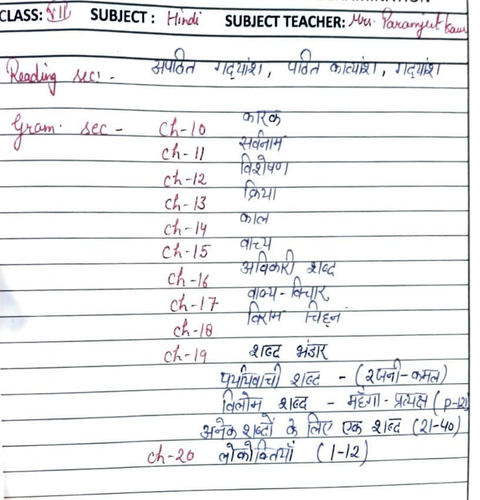 CLASS: VII SUBJECT: Hindi SUBJECT TEACHER: Mrs. Paramjeet Kaur
Reading sec: - अपठित गद्यांश, पठित काव्यांश, गद्यांश
Gram. sec - ch-10 कारक
ch-11 सर्वनाम
ch-12 विशेषण
ch-13 क्रिया
ch-14 काल
ch-15 वाच्य
ch-16 अविकारी शब्द
ch-17 वाक्य-विचार
ch-18 विराम चिह्न
ch-19 शब्द भंडार
पर्यायवाची शब्द - (रजनी-कमल)
विलोम शब्द - महँगा-प्रत्यक्ष (P-121
अनेक शब्दों के लिए एक शब्द (21-40)
ch-20 लोकोक्तियाँ (1-12)